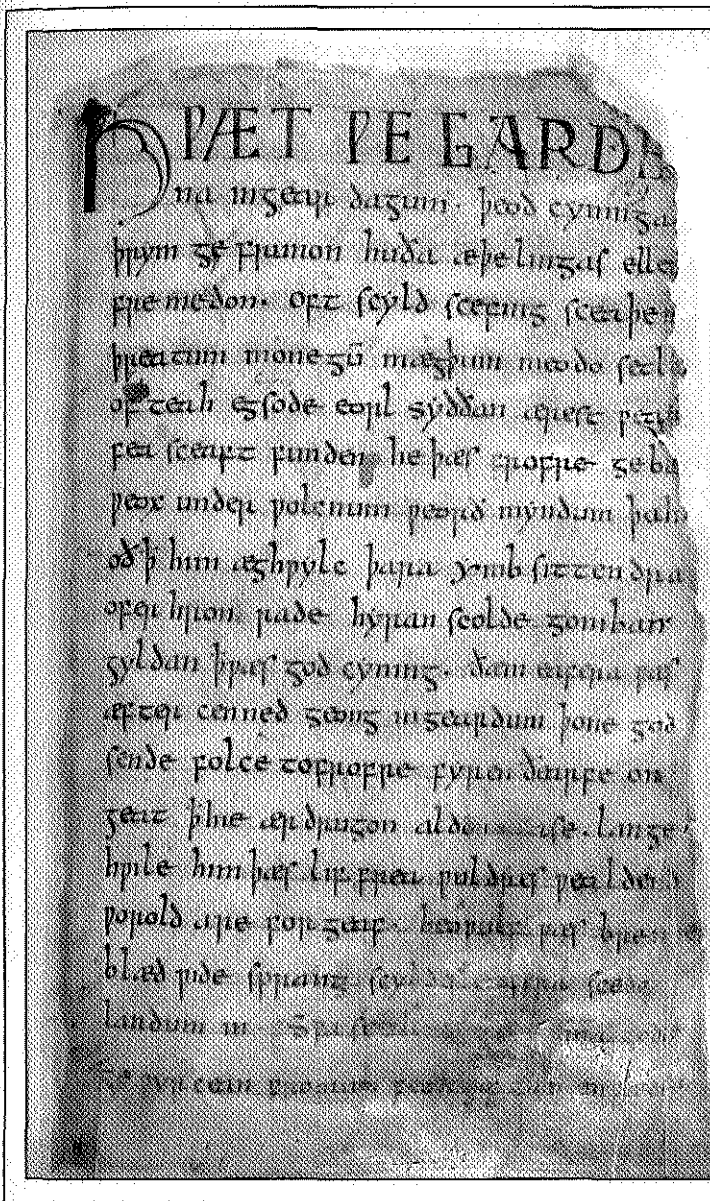 HǷÆT ǷE GARDE
na ingear dagum. þeod cyninga
þrym ge frunon huða æþelingas elle
fremedon. oft scyld scefing sceaþe
þreatum monegū mægþum meodo setla
of teah egsode eorl syððan ærest ƿearð
fea sceaft funden he þæs frofre geba
ƿeox under ƿolcnum ƿeorð myndum þah
oð ꝥ him æghƿylc þara ymb sittendra
ofer hron rade hyran scolde gomban
gyldan ꝥ ƿæs god cyning. ðæm eafera ƿæs
æfter cenned geong ingeardum þone god
sende folce tofrofre fyren ðearfe on
geat ꝥ hie ær drugon aldor ase. lange
hƿile him þæs lif frea ƿuldres ƿealdend
ƿorold are for geaf. beoƿulf ƿæs breme
blæd ƿide sprang scyldes eafera scede
landum in